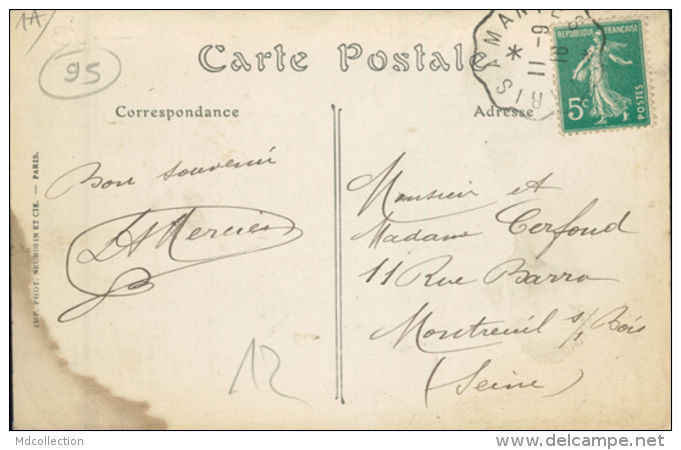 1A
95
Carte Postale
Correspondance
Adresse
RÉPUBLIQUE FRANÇAISE
5c
POSTES
11-9
Bon souvenir
Mercier
12
IMP. PHOT. NEURDEIN ET CIE. — PARIS.
Monsieur et
Madame Cerfond
11 Rue Barra
Montreuil s/s Bois
(Seine)
Mdcollection
www.delcampe.net